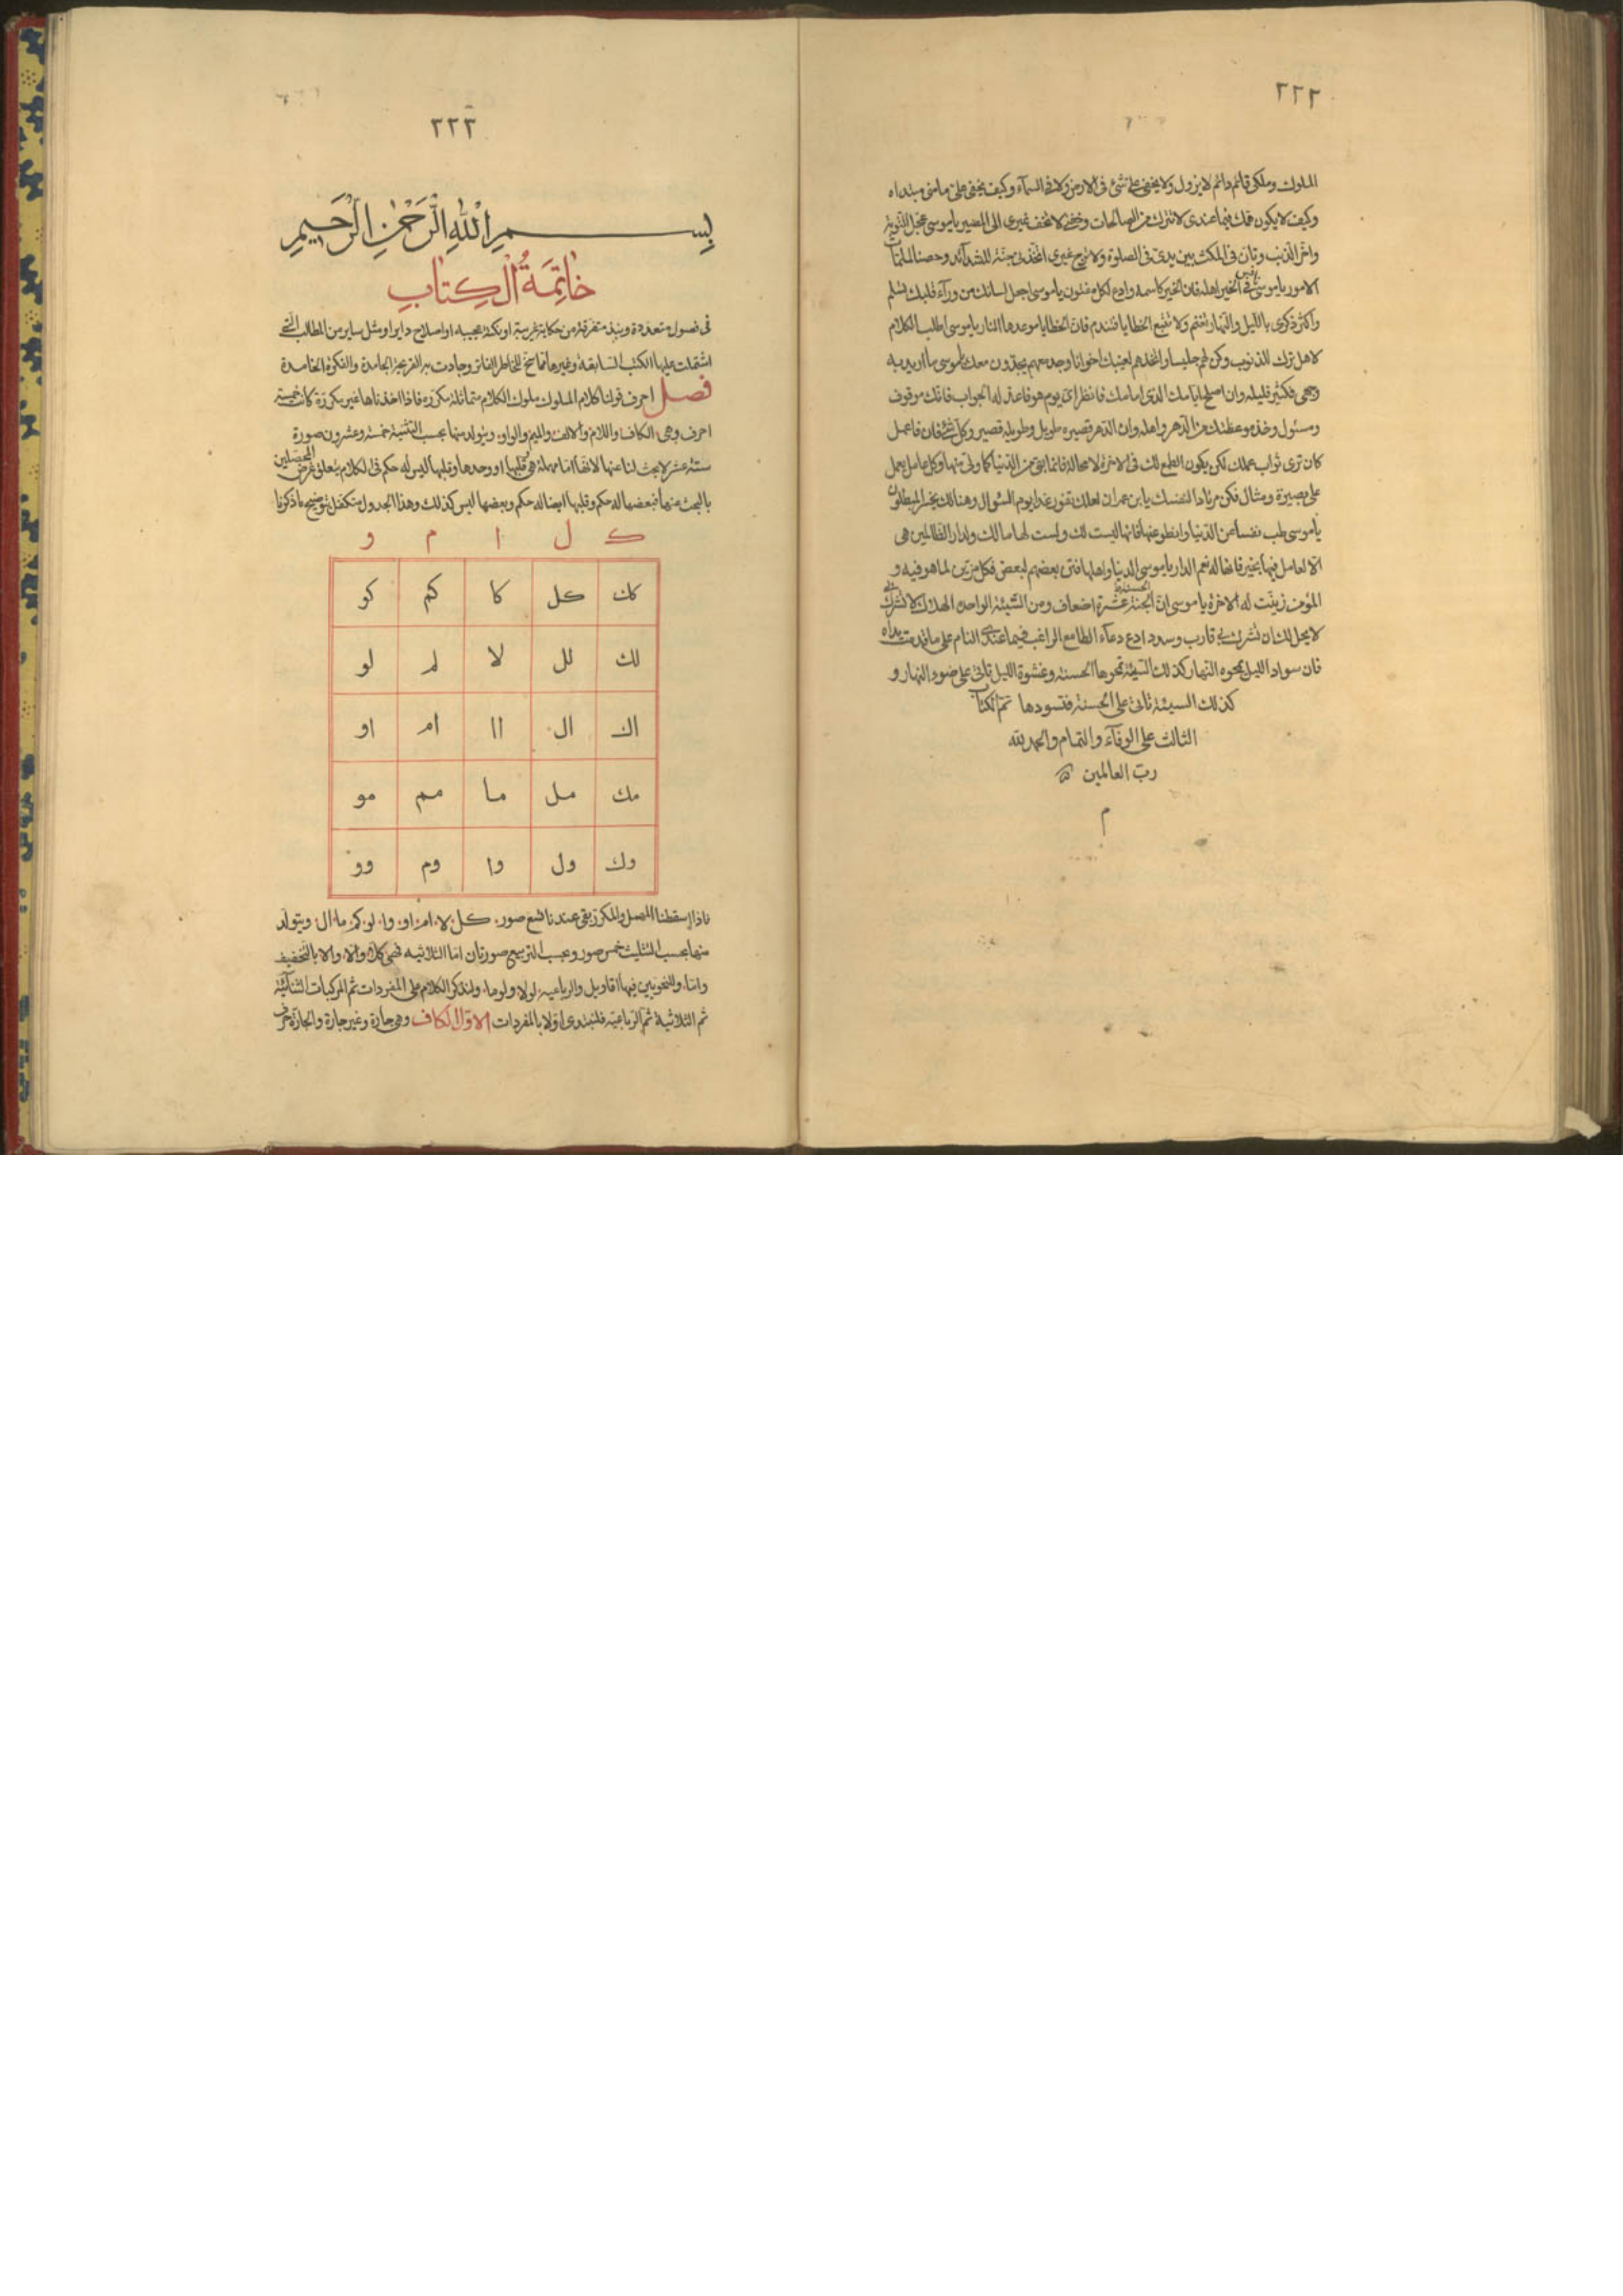 ٢٢٢
الملوك وملكى قائم دائم لا يزول ولا يخفى على شئ فى الارض ولا فى السمآء وكيف يخفى على ما منى مبتداه
وكيف لا يكون همك فيما عندى لا تترك من الصالحات وخفنى لا تخف غيرى الى المصير يا موسى عجل التوبة
واخر الذنب وتأن فى المكث بين يدى فى الصلوة ولا ترج غيرى اتخذنى جنة للشدآئد وحصنا لملمات
الامور يا موسى نافس فى الخير اهله فان الخير كاسمه وادع لكل مفتون يا موسى اجعل لسانك من ورآء قلبك تسلم
واكثر ذكرى بالليل والنهار تغنم ولا تتبع الخطايا فتندم فان الخطايا موعدها النار يا موسى اطلب الكلام
لاهل ترك الذنوب وكن لهم جليسا واتخذهم لغيبك اخوانا وجد معهم يجدون معك يا موسى ما اريد به
وجهى فكثير قليله وان اصلح ايامك الذى امامك فانظر اى يوم هو فاعد له الجواب فانك موقوف
ومسئول وخذ موعظتك من الدهر واهله وان الدهر قصيره طويل وطويله قصير وكل شئ فان فاعمل
كان ترى ثواب عملك لكى يكون اطمع لك فى الاخرة لا محالة فانما بقى من الدنيا كما ولى منها وكل عامل يعمل
على بصيرة ومثال فكن مرتادا لنفسك يا بن عمران لعلك تفوز غدا يوم السؤال وهنالك يخسر المبطلون
يا موسى طب نفسا عن الدنيا وانطو عنها فانها ليست لك ولست لها ما لك ولدار الظالمين هى
الا لعامل فيها بخير فانها له نعم الدار يا موسى الدنيا واهلها فتن بعضهم لبعض فكل مزين لما هو فيه و
المؤمن زينت له الاخرة يا موسى ان الحسنة عشرة اضعاف ومن السيئة الواحدة الهلاك لا تشرك بى
لا يحل لك ان تشرك بى قارب وسدد ادع دعآء الطامع الراغب فيما عندى النادم على ما قدمت يداه
فان سواد الليل يمحوه النهار كذلك السيئة تمحوها الحسنة وغشوة الليل تأتى على ضوء النهار و
كذلك السيئة تأتى على الحسنة فتسودها تم الكتاب
الثالث على الوفآء والتمام والحمد لله
رب العالمين
م
٢٢٣
بِسْمِ اللهِ الرَّحْمٰنِ الرَّحِيمِ
خاتِمَةُ الْكِتابِ
فى فصول متعددة ونبذ متفرقة من حكاية غريبة او نكتة عجيبه او اصلاح داير او مثل ساير من المطالب التى
اشتملت عليها الكتب السابقة وغيرها مما سنح للخاطر الفاتر وجادت به القريحة الجامدة والفكرة الخامدة
فصل احرف قولنا كلام الملوك ملوك الكلام متماثلة مكررة فاذا اخذناها غير مكررة كانت خمسة
احرف وهى الكاف واللام والالف والميم والواو ويتولد منها بحسب التثنية خمسة وعشرون صورة
ستة عشر لا بحث لنا عنها لانها اما مهملة هى وقلبها او وحدها وقلبها ليس له حكم فى الكلام يتعلق غرض المحصلين
بالبحث عنها فبعضها له حكم وقلبها ايضا له حكم وبعضها ليس كذلك وهذا الجدول متكفل بتوضيح ما ذكرنا
ك ل ا م و
كك كل كا كم كو
لك لل لا لم لو
اك ال اا ام او
مك مل ما مم مو
وك ول وا وم وو
فاذا اسقطنا المهمل والمكرر بقى عندنا تسع صور كل لا ام او وا لو كم ما ال ويتولد
منها بحسب التثليث خمس صور وبحسب التربيع صورتان اما الثلاثية فهى كلا والا والا بالتخفيف
واما وللنحويين فيها اقاويل والرباعية لولا ولوما ولنذكر الكلام على المفردات ثم المركبات الثنائية
ثم الثلاثية ثم الرباعية فلنبتدى اولا بالمفردات الاول الكاف وهى جارة وغير جارة والجارة حرف